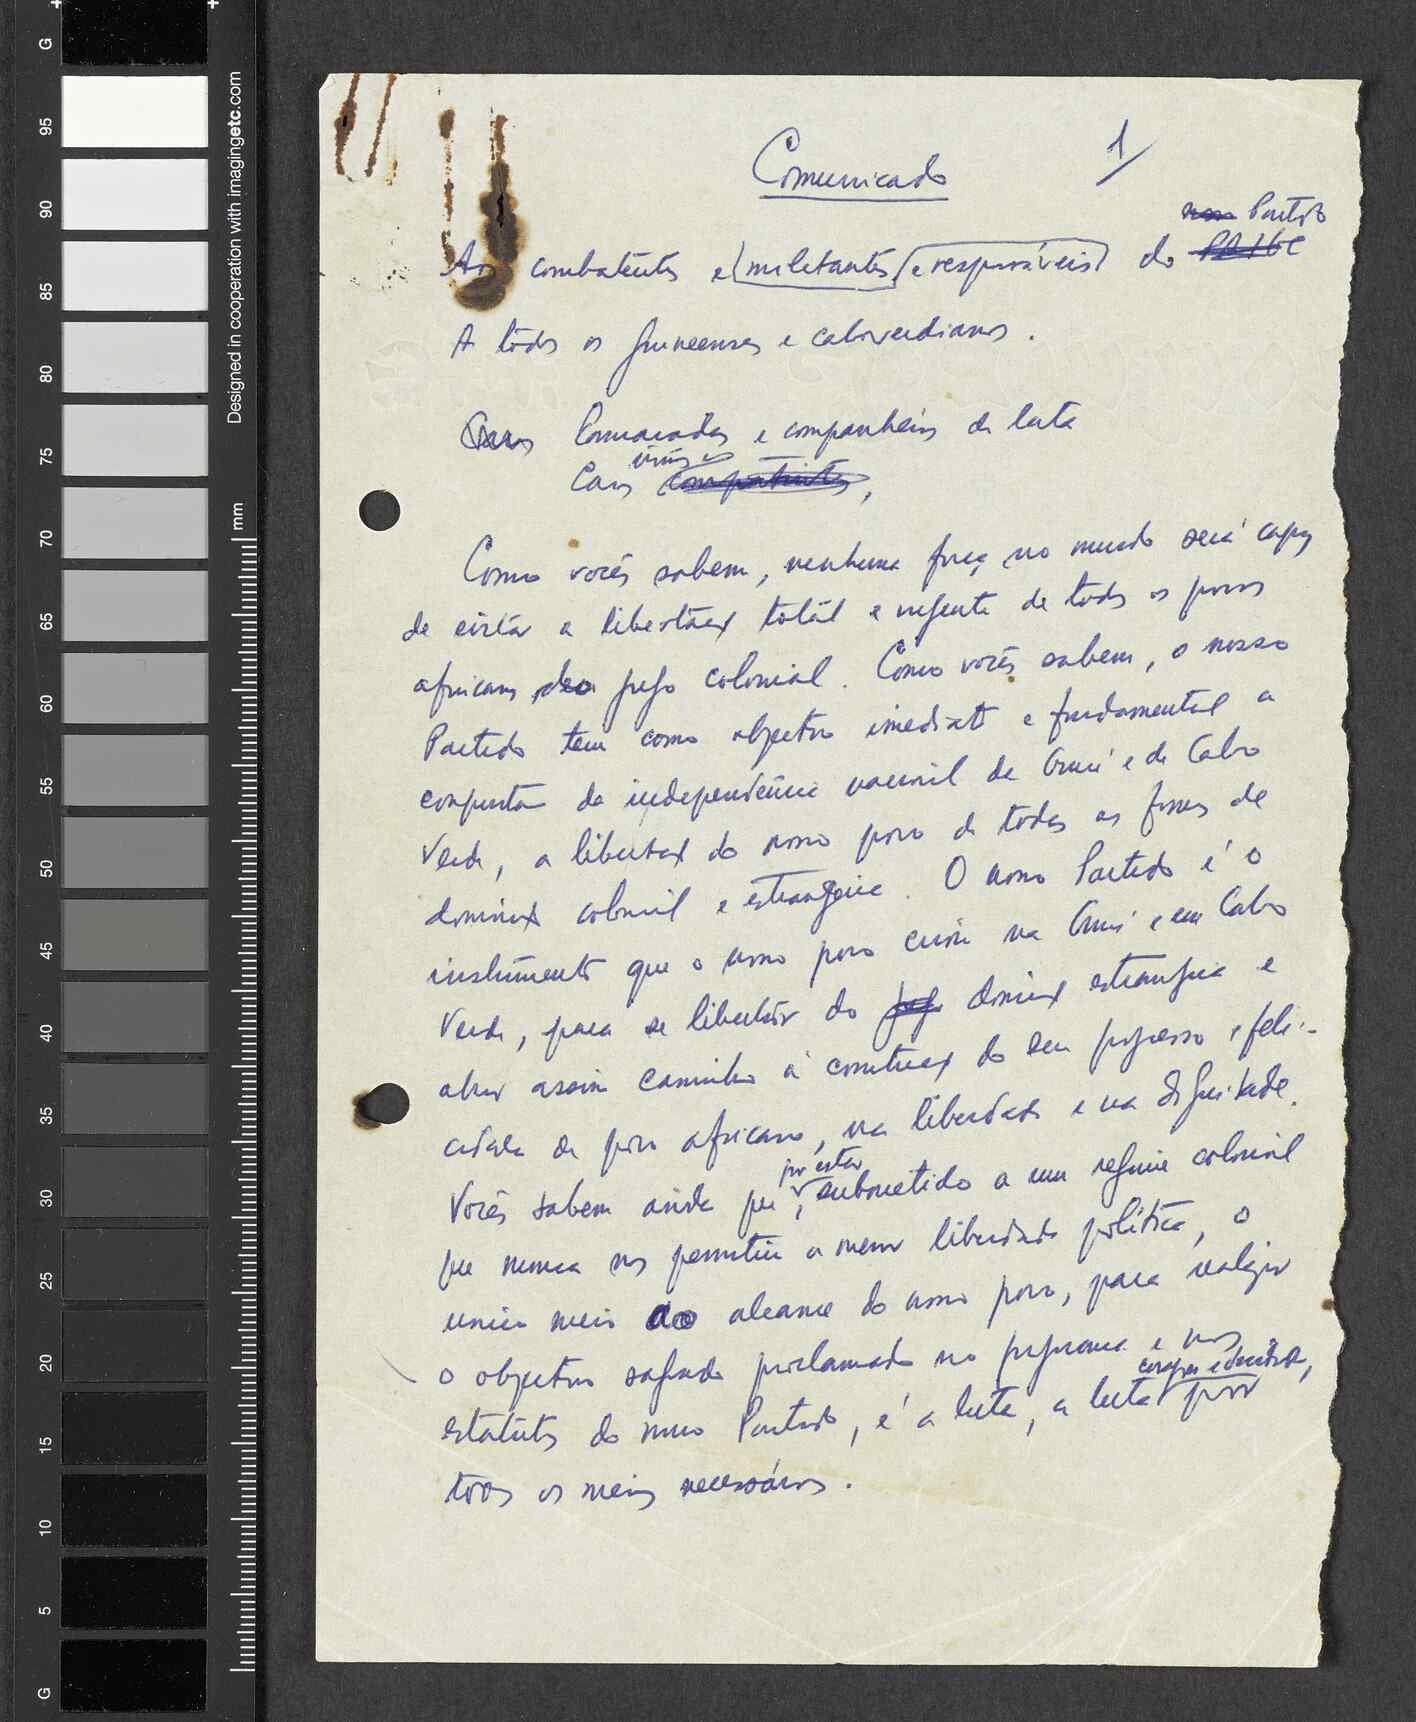 Comunicado 1/
Aos combatentes e militantes e responsáveis do nosso Partido PAIGC
A todos os guineenses e caboverdianos.
Caros Camaradas e companheiros de luta
Caros irmãos compatriotas,
Como vocês sabem, nenhuma força no mundo será capaz
de evitar a libertação total e urgente de todos os povos
africanos do jugo colonial. Como vocês sabem, o nosso
Partido tem como objectivo imediato e fundamental a
conquista da independência nacional da Guiné e de Cabo
Verde, a libertação do nosso povo de todas as formas de
domínio colonial e estrangeiro. O nosso Partido é o
instrumento que o nosso povo criou na Guiné e em Cabo
Verde, para se libertar do jugo domínio estrangeiro e
abrir assim caminho à construção do seu progresso e feli-
cidade de povo africano, na liberdade e na dignidade.
Vocês sabem ainda que, por estar submetido a um regime colonial
que nunca nos permitiu a menor liberdade política, o
único meio ao alcance do nosso povo, para realizar
o objectivo sagrado proclamado no programa e nos
estatutos do nosso Partido, é a luta, a luta corajosa e decidida, por
todos os meios necessários.
Designed in cooperation with imagingetc.com
mm
G
95
90
85
80
75
70
65
60
55
50
45
40
35
30
25
20
15
10
5
G